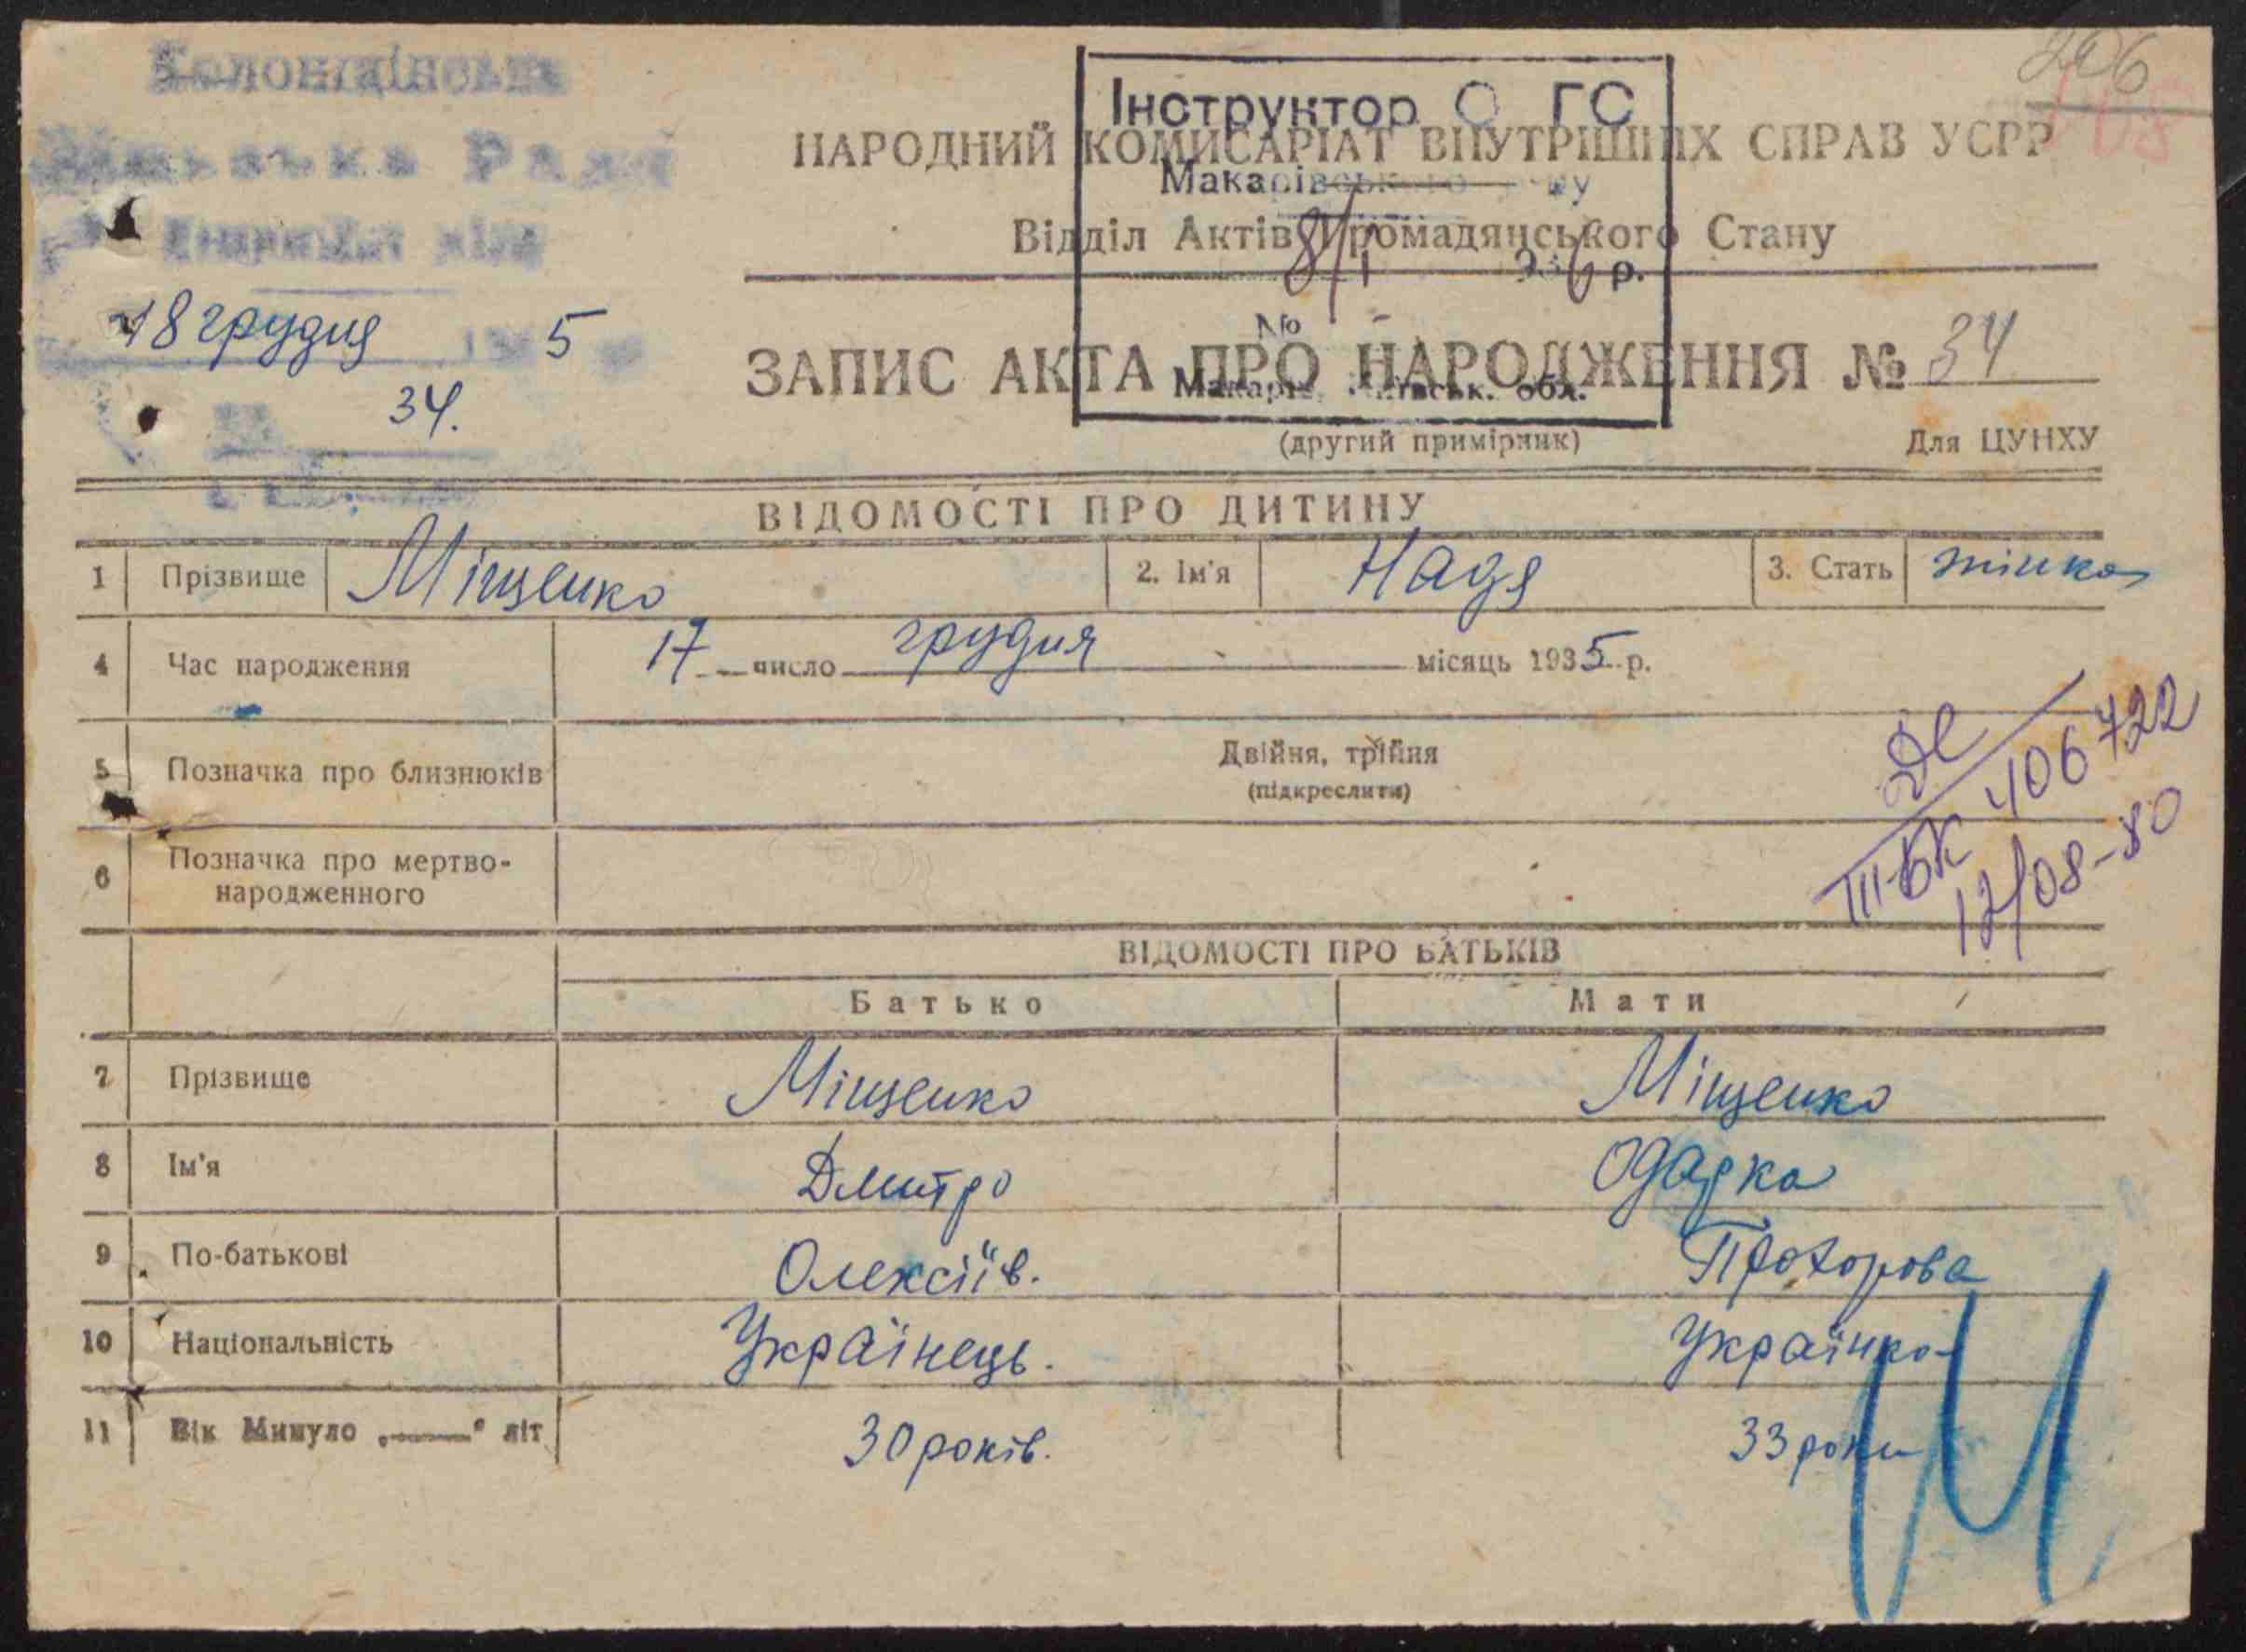 Рада
18 грудня 5
34.
206
Інструктор О ГС
НАРОДНИЙ КОМИСАРІАТ ВНУТРІШНІХ СПРАВ УСРР
Відділ Актів Громадянського Стану
8/I 936 р.
№
ЗАПИС АКТА ПРО НАРОДЖЕННЯ № 34
Макарів, Київськ. обл.
(другий примірник)
Для ЦУНХУ
ВІДОМОСТІ ПРО ДИТИНУ
1 Прізвище Міщенко 2. Ім'я Надя 3. Стать жінка
4 Час народження 17 число грудня місяць 1935 р.
5 Позначка про близнюків Двійня, трійня
(підкреслити)
6 Позначка про мертво-
народженного
ІІІ-БК 406722
12/08-80
ВІДОМОСТІ ПРО БАТЬКІВ
Батько Мати
7 Прізвище Міщенко Міщенко
8 Ім'я Дмитро Одарка
9 По-батькові Олексіїв. Прохорова
10 Національність Українець. Українка
11 Вік Минуло „—“ літ 30 років. 33 роки